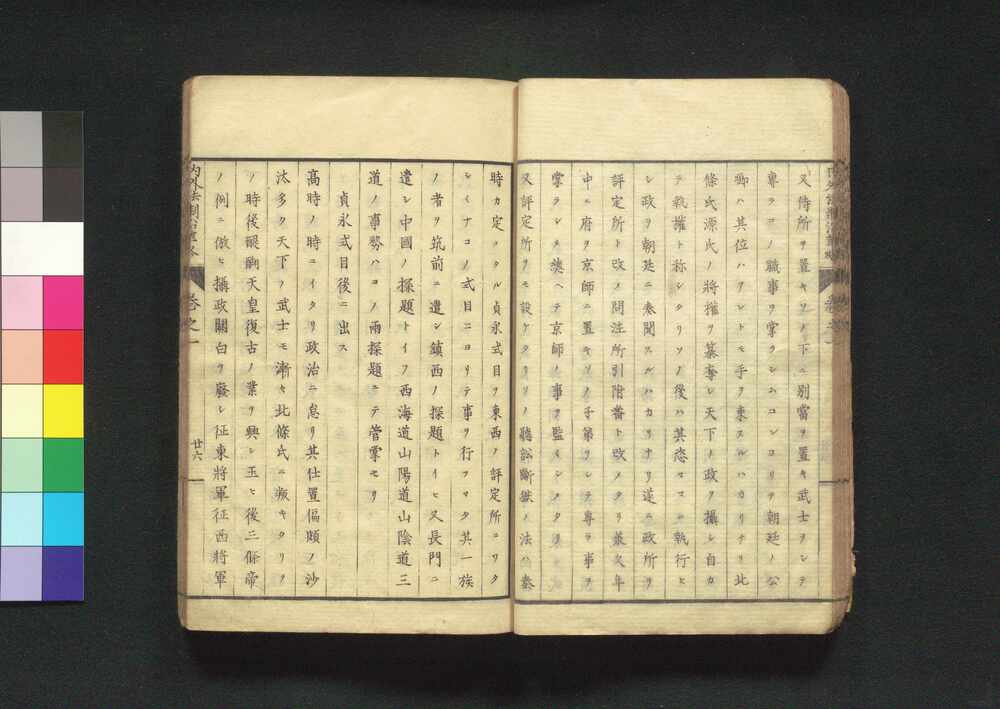 又侍所ヲ置キソノ下ニ別當ヲ置キ武士ヲシテ
專ラコノ職事ヲ掌ラシムコレヨリ朝廷ノ公
卿ハ其位ハアレトモ手ヲ束スルハカリナリ北
條氏源氏ノ將權ヲ簒奪シ天下ノ政ヲ攝シ自カ
ラ執權ト称シタリソノ後ハ其恣マヽニ執行ヒ
シ政ヲ朝廷ニ奏聞スルハカリナリ遂ニ政所ヲ
評定所ト改メ問注所引附番ト改メタリ兼久年
中ニ府ヲ京師ニ置キソノ子弟ヲシテ專ラ事ヲ
掌ラシメ總ヘテ京師ノ事ヲ監セシメタリ
又評定所ヲモ設ケタリソノ聽訟斷獄ノ法ハ泰
時カ定メタル貞永式目ヲ東西ノ評定所ニワタ
シイナコノ式目ニヨリテ事ヲ行フマタ其一族
ノ者ヲ筑前ニ遣シ鎮西ノ探題トイヒ又長門ニ
遣シ中國ノ探題トイフ西海道山陽道山陰道三
道ノ事務ハコノ兩探題ニテ管掌セリ
貞永式目後ニ出ス
高時ノ時ニイタリ政治ニ怠リ其仕置偏頗ノ沙
汰多ク天下ノ武士モ漸々北條氏ニ叛キタリソ
ノ時後醍醐天皇復古ノ業ヲ興シ玉ヒ後三條帝
ノ例ニ倣ヒ攝政關白ヲ廢シ征東將軍征西將軍
卷之一
廿六